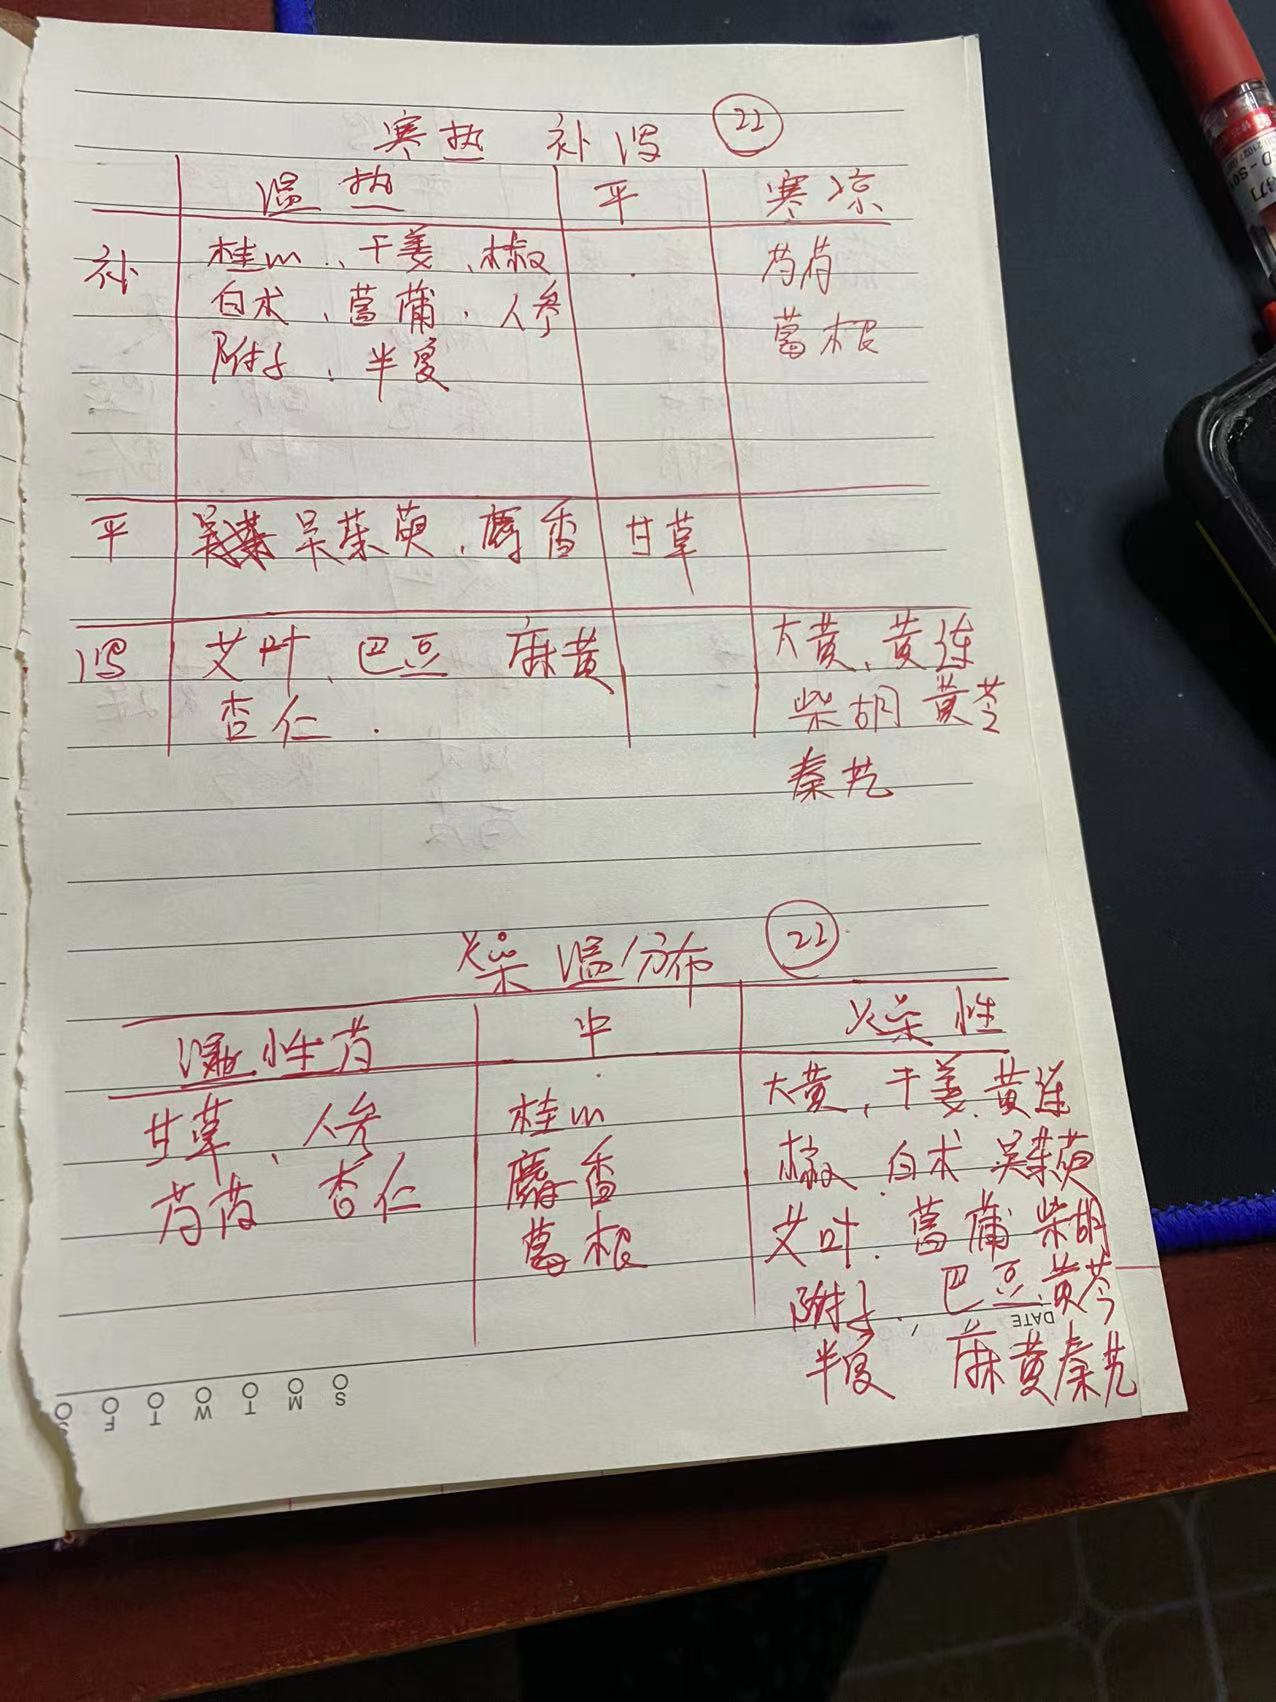 寒热 补泻 22
温热 平 寒凉
补 桂心、干姜、椒 芍药
白术、菖蒲、人参 葛根
附子、半夏
平 吴茱萸、麝香 甘草
泻 艾叶、巴豆 麻黄 大黄、黄连
杏仁 柴胡 黄芩
秦艽
燥湿分布 22
湿性药 中 燥性
甘草、人参 桂心 大黄、干姜、黄连
芍药 杏仁 麝香 椒 白术 吴茱萸
葛根 艾叶、菖蒲 柴胡
附子、巴豆、黄芩
半夏 麻黄 秦艽
DATE
S M T W T F